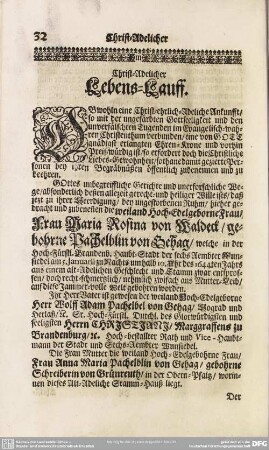 32 Christ-Adelicher
Christ-Adelicher
Lebens-Lauff.
OBwohln eine Christ-ehrlich-Adeliche Ankunfft/
so mit der ungefärbten Gottseeligkeit und den
unverfälschten Tugenden im Evangelisch-wah-
ren Christenthum verbunden/ eine von GOTT
gnädigst erlangte Ehren-Krone und vorhin
Preiß-würdig ist/ so erfordert doch die Christliche
Liebes-Gewohnheit/ sothane damit gezierte Per-
sonen bey ihren Begräbnüssen öffentlich zubenennen und zu
beehren.
Gottes unbegreiffliche Gerichte und unerforschliche We-
ge/ absonderlich dessen allezeit gerecht- und heiliger Wille ists/ daß
jetzt zu ihrer Beerdigung/ der ungestorbenen Ruhm/ hieher ge-
bracht und zubenennen die weiland Hoch-Edelgeborne Frau/
Frau Maria Rosina von Waldeck / ge-
bohrne Pachelblin von Gehag/ welche in der
Hoch-Fürstl. Brandenb. Haubt-Stadt der sechs Aembter Wun-
siedel am 5. Januarii zu Nachts um halb 10. Uhr des 1642sten Jahrs
aus einem alt-Adelichen Geschlecht und Stamm zwar entspros-
sen/ doch recht schmertzlich/ nehmlich zwifach aus Mutter-Leib/
auf diese Jammer-volle Welt gebohren worden.
Ihr Herr Vater ist gewesen der weiland Hoch-Edelgeborne
Herr Wolff Adam Pachelbel von Gehag/ Mograd und
Hertlas/ &c. Sr. Hoch-Fürstl. Durchl. des Glorwürdigsten und
seeligsten Herrn CHRISTIANI/ Marggraffens zu
Brandenburg/ &c. Hoch-bestallter Rath und Vice-Haubt-
mann der Stadt und Sechs-Aembter Wunsiedel.
Die Frau Mutter die weiland Hoch-Edelgebohrne Frau/
Frau Anna Maria Pachelblin von Gehag/ gebohrne
Schreiberin von Grünreuth/ in der Obern-Pfaltz/ worin-
nen dieses Alt-Adeliche Stamm-Hauß liegt.
Der